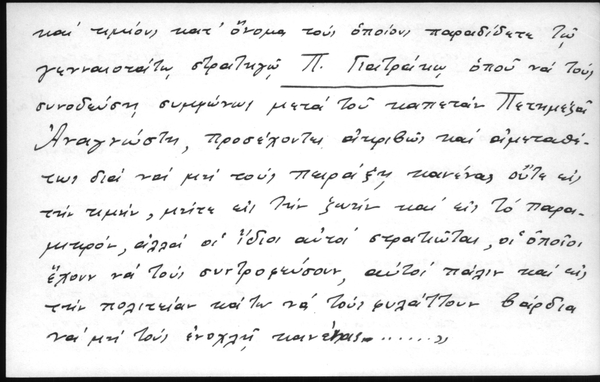 καί τιμίους κατ' ὄνομα τούς ὁποίους παραδίδετε τῷ
γενναιοτάτῳ στρατηγῷ Π. Γιατράκῳ ὁποῦ νά τούς
συνοδεύσῃ συμφώνως μετά τοῦ καπετάν Πετημεζᾶ
Ἀναγνώστη, προσέχοντες ἀκριβῶς καί ἀμεταθέ-
τως διά νά μή τούς πειράξῃ κανένας οὔτε εἰς
τήν τιμήν, μήτε εἰς τήν ζωήν καί εἰς τό παρα-
μικρόν, ἀλλά οἱ ἴδιοι αὐτοί στρατιῶται, οἱ ὁποῖοι
ἔχουν νά τούς συντροφεύσουν, αὐτοί πάλιν καί εἰς
τήν πολιτείαν κάτω νά τούς φυλάττουν βάρδια
νά μή τούς ἐνοχλῇ κανένας.......»